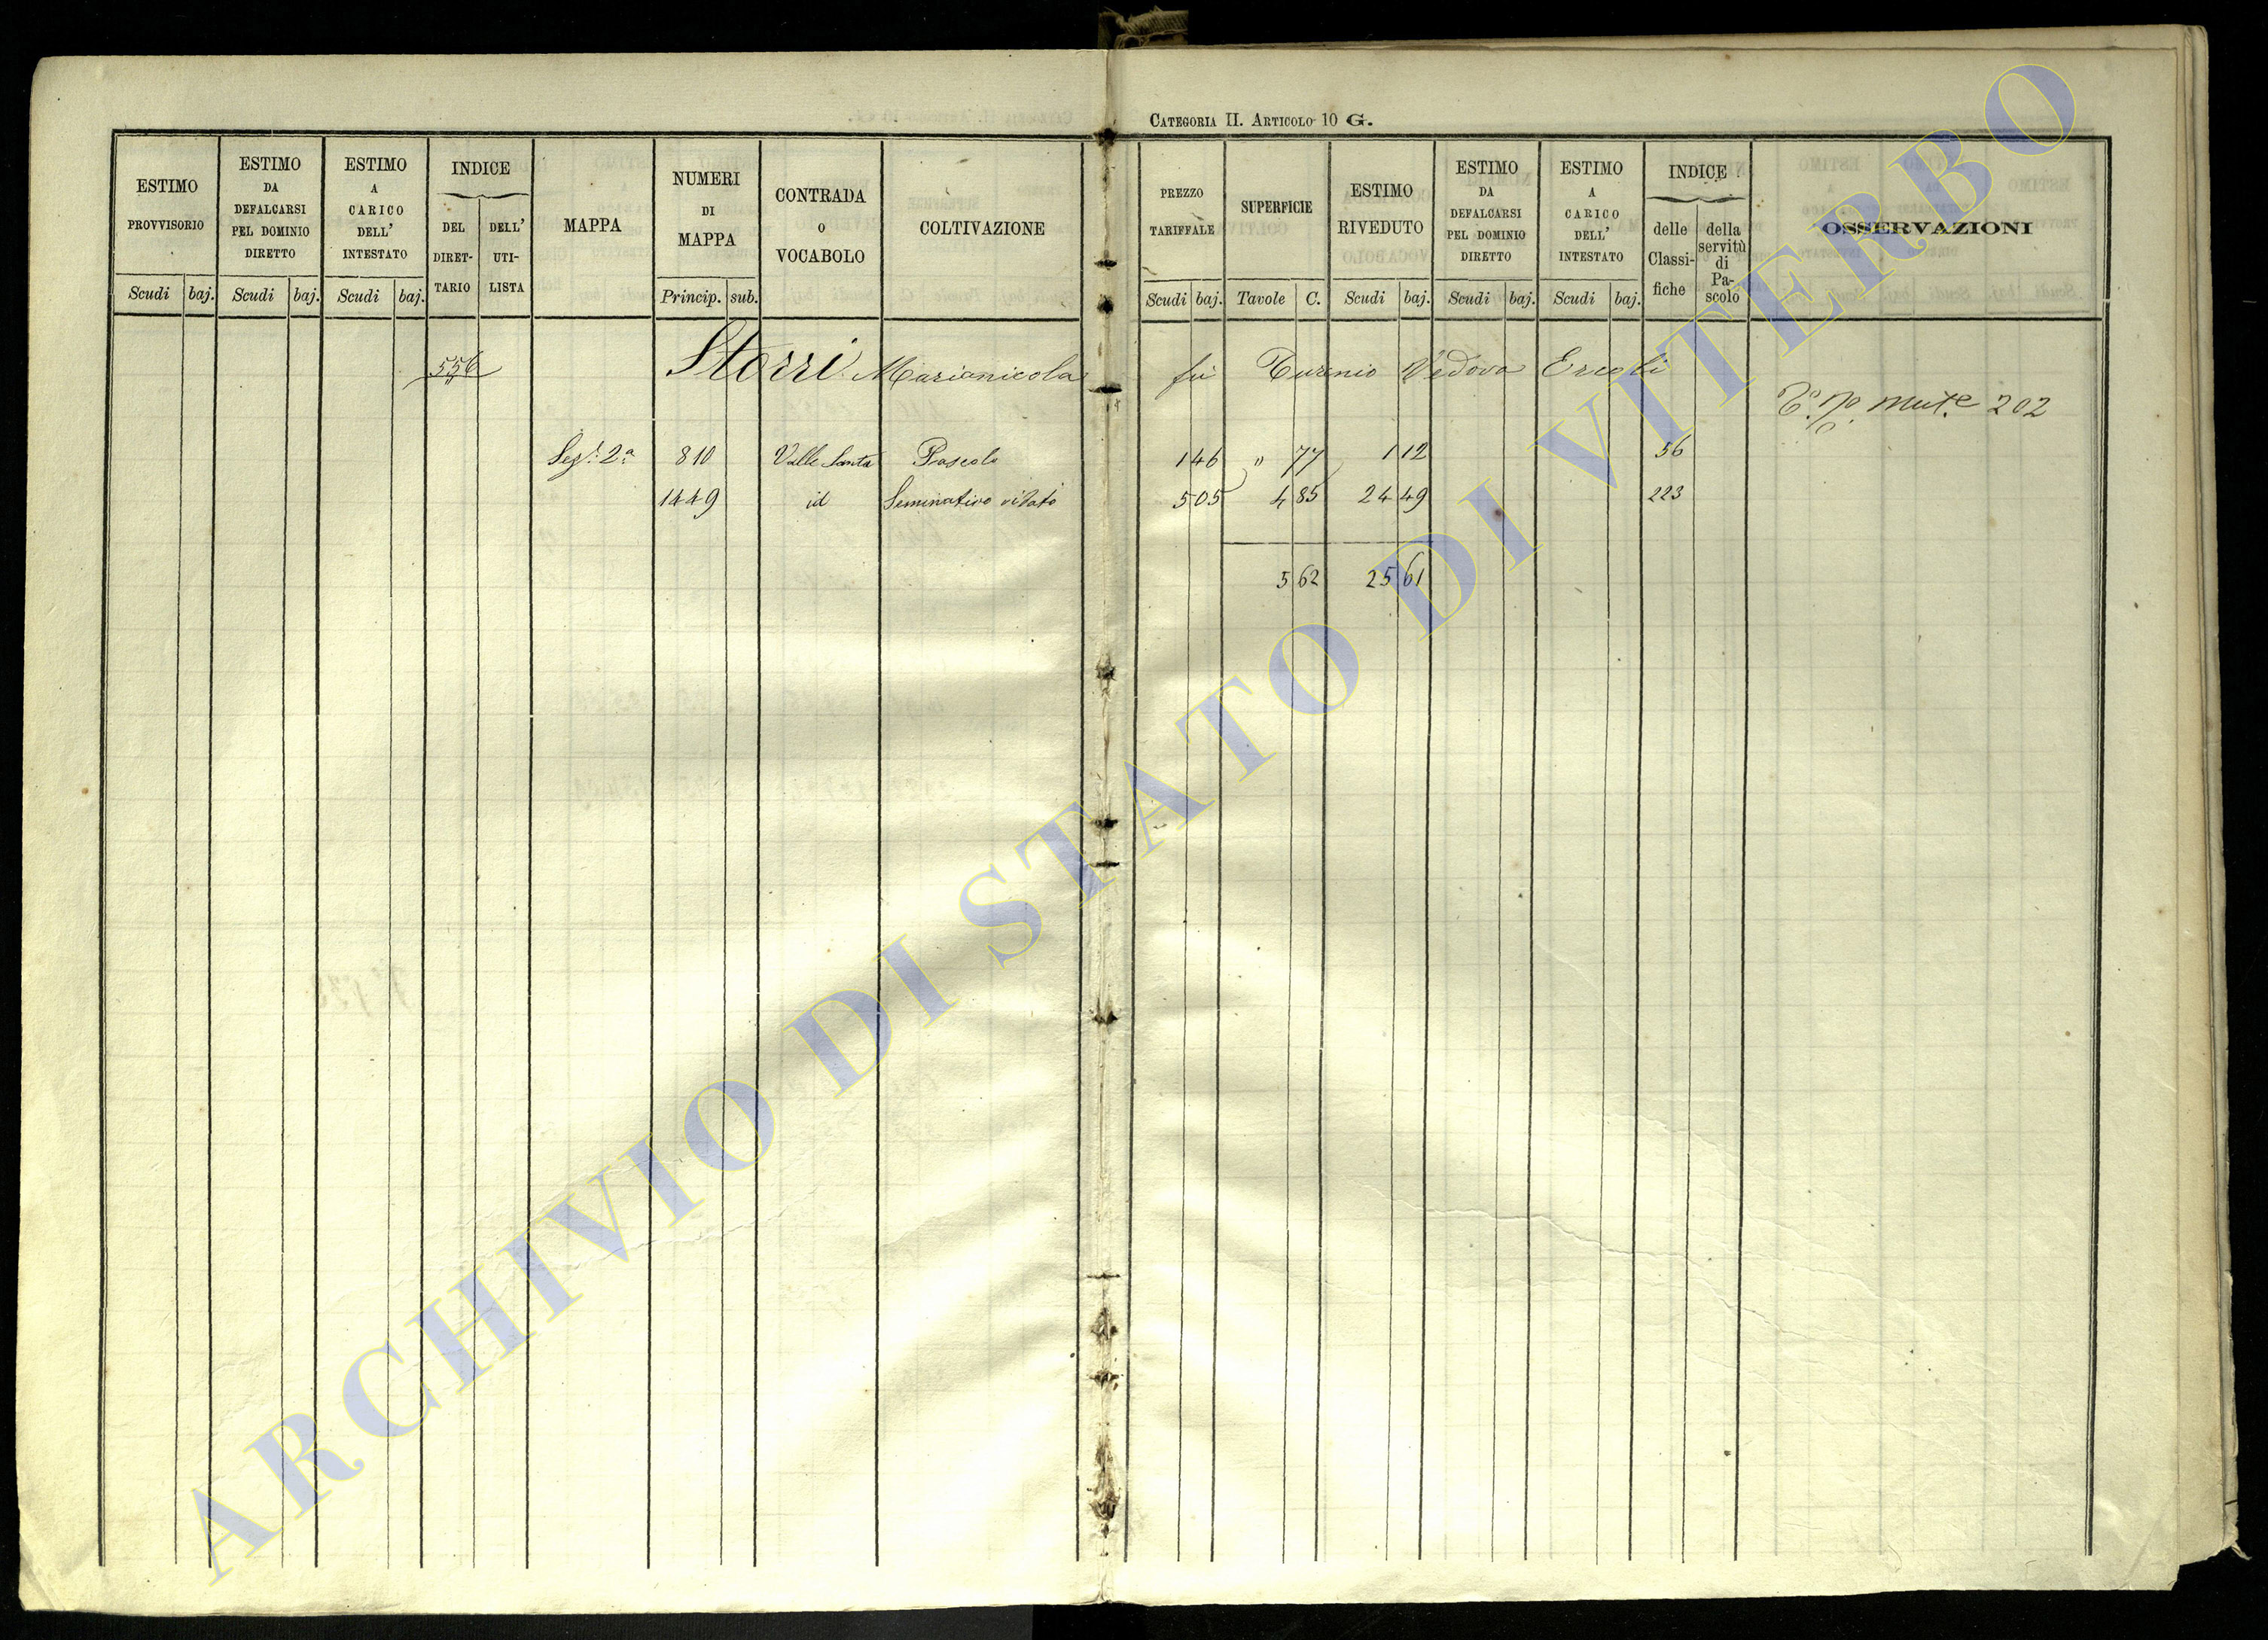 CATEGORIA II. ARTICOLO 10 G.
ESTIMO PROVVISORIO Scudi baj.
ESTIMO DA DEFALCARSI PEL DOMINIO DIRETTO Scudi baj.
ESTIMO A CARICO DELL' INTESTATO Scudi baj.
INDICE DEL DIRET-TARIO DELL' UTI-LISTA
MAPPA
NUMERI DI MAPPA Princip. sub.
CONTRADA O VOCABOLO
COLTIVAZIONE
PREZZO TARIFFALE Scudi baj.
SUPERFICIE Tavole C.
ESTIMO RIVEDUTO Scudi baj.
ESTIMO DA DEFALCARSI PEL DOMINIO DIRETTO Scudi baj.
ESTIMO A CARICO DELL' INTESTATO Scudi baj.
INDICE delle Classi-fiche della servitù di Pa-scolo
OSSERVAZIONI
556 Storri Marianicola fu Vedova Ercoli
mut.e 202
Sez. 2a 810 Valle Santa Pascolo 1 46 " 77 1 12 56
1449 id Seminativo vitato 5 05 4 85 24 49 223
5 62 25 61
ARCHIVIO DI STATO DI VITERBO